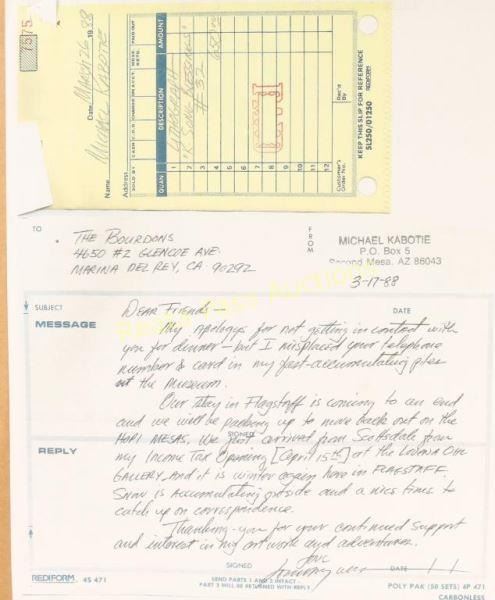 7575
Date March 26 1988
Name MICHAEL KABOTIE
Address
SOLD BY CASH C.O.D. CHARGE ON ACCT. MDSE. RETD. PAID OUT
QUAN. DESCRIPTION AMOUNT
1 LITHOGRAPH
2
3 #32
4
5
6
7
8
9
10
11
12
Customer's Order No. Rec'd By
KEEP THIS SLIP FOR REFERENCE
5L250/01250 REDIFORM
TO
THE BOURDONS
4650 #2 GLENCOE AVE.
MARINA DEL REY, CA 90292
FROM
MICHAEL KABOTIE
P.O. Box 5
Second Mesa, AZ 86043
3-17-88
SUBJECT
DATE
MESSAGE
DEAR FRIENDS -
My apologys for not getting in contact with
you for dinner - but I misplaced your telephone
number & card in my fast-accumulating piles
at the Museum.
Our stay in Flagstaff is coming to an end
and we will be packing up to move back out on the
SIGNED
HOPI MESAS. We just arrived from Scottsdale from
REPLY
my Income Tax Opening [April 15th] at the
GALLERY And it is winter again here in FLAGSTAFF.
Snow is Accumulating outside and a nice time to
catch up on correspondence.
Thanking-you for your continued support
and interest in my art work and adventures.
SIGNED
DATE / /
REDIFORM 4S 471
SEND PARTS 1 AND 3 INTACT -
PART 3 WILL BE RETURNED WITH REPLY
POLY PAK (50 SETS) 4P 471
CARBONLESS